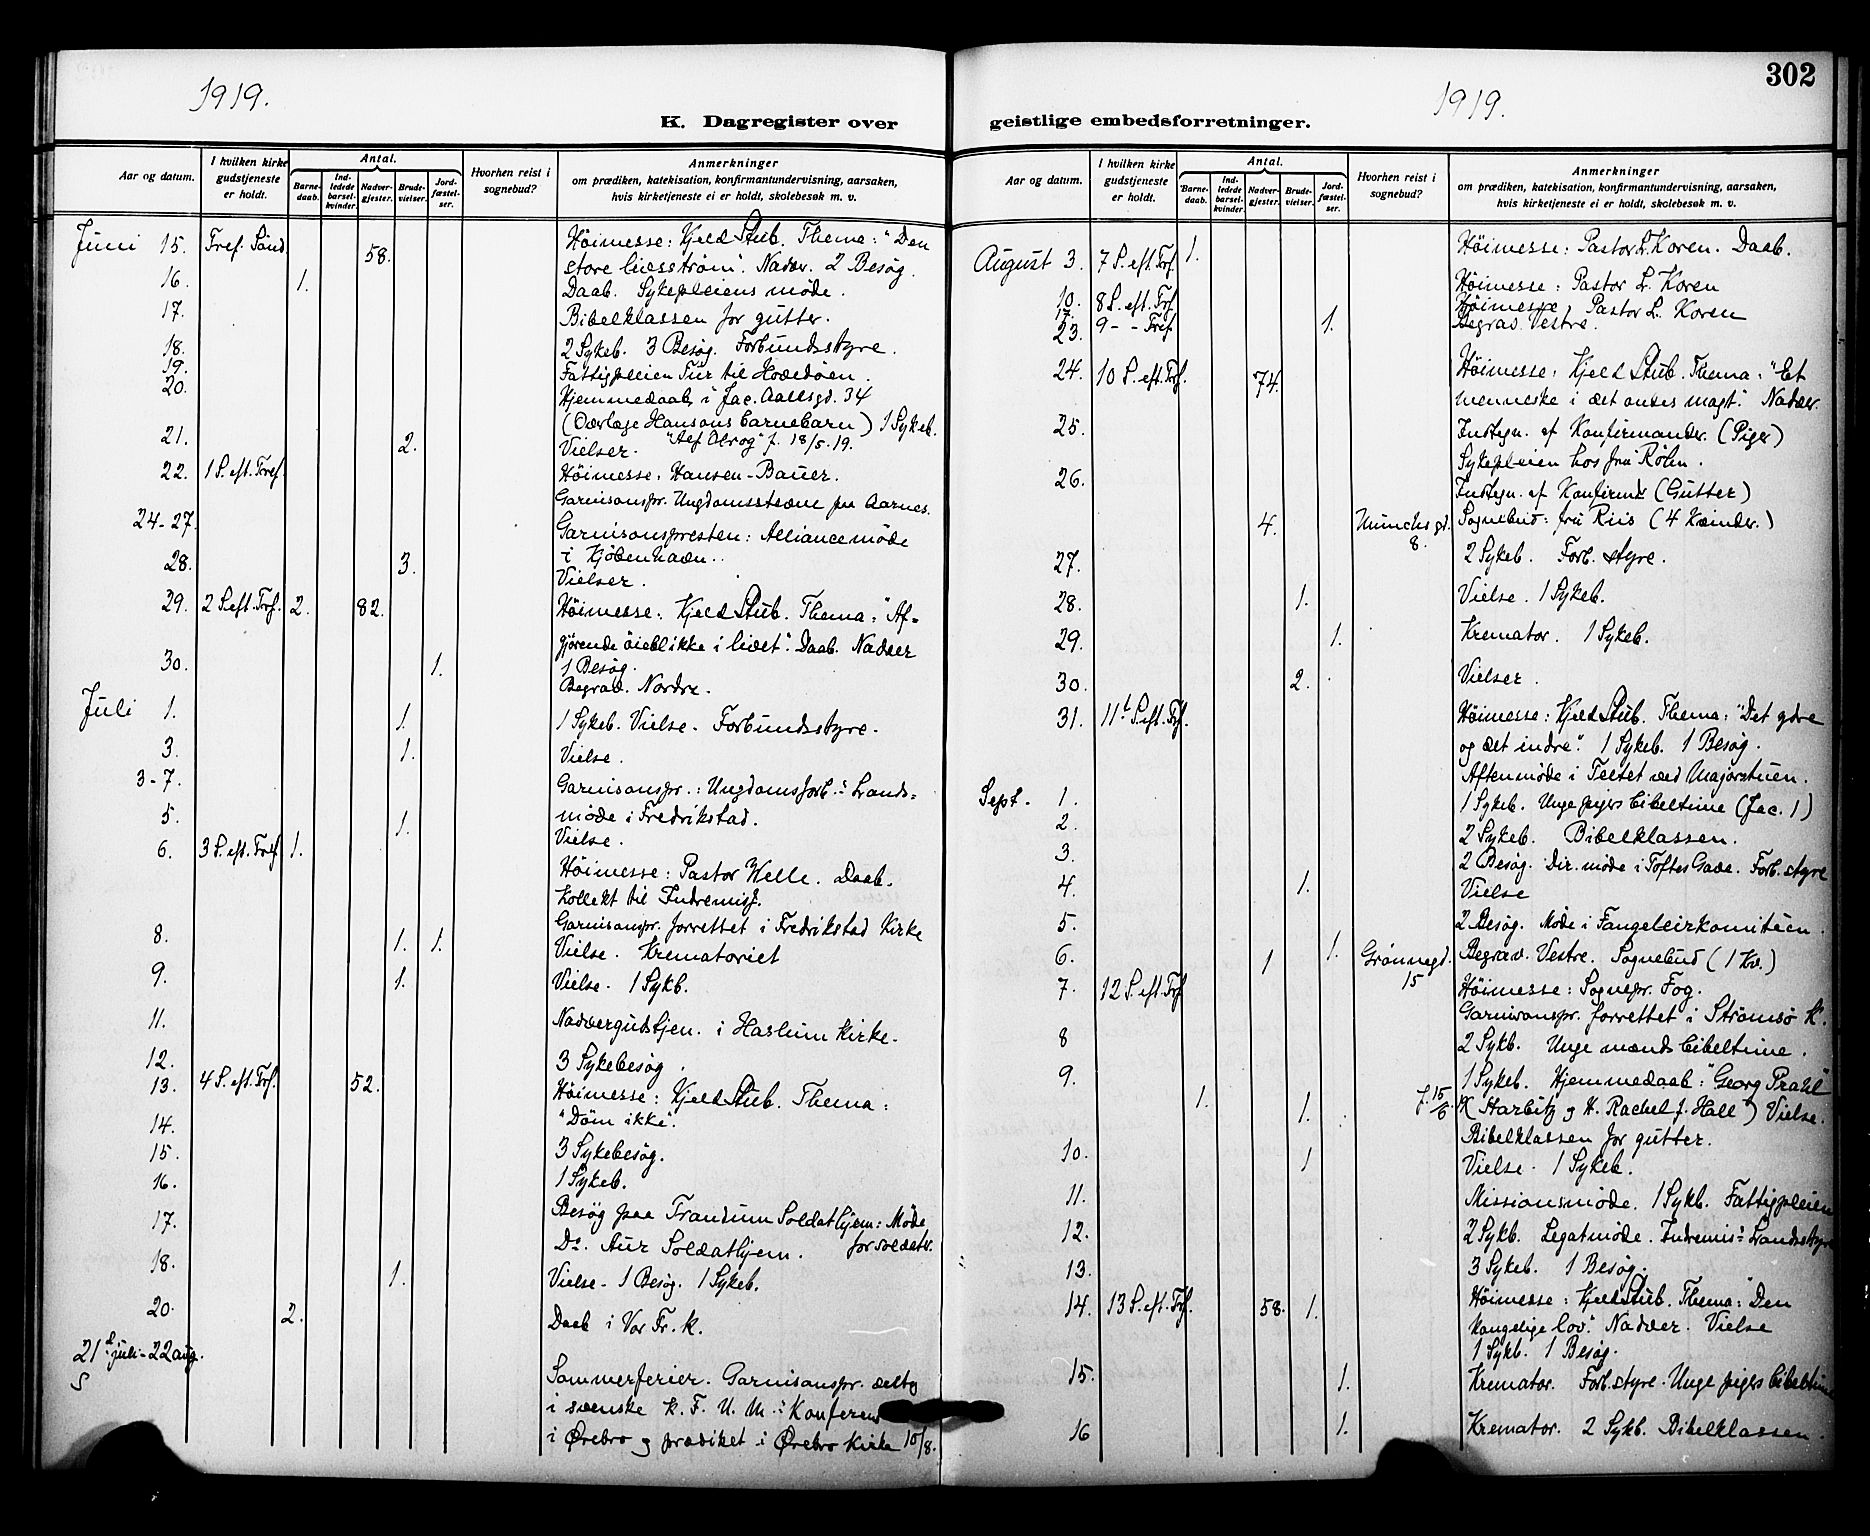 1919.
K. Dagregister over
Aar og datum.
I hvilken kirke gudstjeneste er holdt.
Antal.
Barnedaab.
Indledede barselkvinder.
Nadvergjester.
Brudevielser.
Jordfæstelser.
Hvorhen reist i sognebud?
Anmerkninger
om prædiken, katekisation, konfirmantundervisning, aarsaken,
hvis kirketjeneste ei er holdt, skolebesøk m. v.
Juni 15. Tref. Sønd. 58. Høimesse: Kjeld Stub. Thema: "Den
store livsstrøm". Nadver. 2 Besøg.
16. 1. Daab. Sykepleiens møde.
17. Bibelklassen for gutter.
18. 2 Sykeb. 3 Besøg. Forbundsstyre.
19. Fattigpleien Tur til Hovedøen.
20. Hjemmedaab i Jac. Aallsgd. 34
(Overlæge Hansons barnebarn) 1 Sykeb.
"Alf Obrog" f. 18/5-19.
21. 2. Vielser.
22. 1 S. eft. Tref. Høimesse: Hansen-Bauer.
Garnisonspr. Ungdomsstevne paa Aarnes.
24-27. Garnisonspresten: Alliancemøde
i Kjøbenhavn.
28. 3. Vielser.
29. 2 S. eft. Trf. 2. 82. Høimesse: Kjeld Stub. Thema: "Af-
gjørende øieblikke i livet". Daab. Nadver
1 Besøg.
30. 1. Begrav. Nordre.
Juli 1. 1. 1 Sykeb. Vielse. Forbundsstyre.
3. 1. Vielse.
3-7. Garnisonspr.: Ungdomsforb.s Lands-
møde i Fredrikstad.
5. 1. Vielse.
6. 3 S. eft. Tref. 1. Høimesse: Pastor Welle. Daab.
Kollekt til Indremisj.
Garnisonspr. forrettet i Fredrikstad Kirke
8. 1. 1. Vielse. Krematoriet
9. 1. Vielse. 1 Sykb.
11. Nadvergudstjen. i Haslum Kirke.
12. 3 Sykebesøg.
13. 4 S. eft. Trf. 52. Høimesse: Kjeld Stub. Thema:
"Døm ikke".
14.
15. 3 Sykebesøg.
16. 1 Sykeb.
17. Besøg paa Trandum Soldathjem: Møde
Do. Aur Soldathjem. for soldater.
18. 1. Vielse. 1 Besøg. 1 Sykeb.
20. 2. Daab i Vor Fr. K.
21 juli-22 aug. Sommerferier. Garnisonspr. deltog
i svenske K.F.U.M.s Konferens
i Ørebro og prædiket i Ørebro Kirke 10/8.
1919.
302
geistlige embedsforretninger.
Aar og datum.
I hvilken kirke gudstjeneste er holdt.
Antal.
Barnedaab.
Indledede barselkvinder.
Nadvergjester.
Brudevielser.
Jordfæstelser.
Hvorhen reist i sognebud?
Anmerkninger
om prædiken, katekisation, konfirmantundervisning, aarsaken,
hvis kirketjeneste ei er holdt, skolebesøk m. v.
August 3. 7 S. eft. Trf. 1. Høimesse: Pastor L. Koren. Daab.
10. 8 S. eft. Trf. Høimesse: Pastor L. Koren
17. 9 - - Tref. Høimesse: Pastor L. Koren
23. 1. Begrav. Vestre.
24. 10 S. eft. Trf. 74. Høimesse: Kjeld Stub. Thema: "Et
menneske i det ondes magt". Nadver.
25. Indtegn. af Konfirmander. (Piger)
Sykepleien hos fru Røhn.
26. Indtegn. af Konfirm. (Gutter)
4. Munchs gd. 8. Sognebud: fru Riis (4 Kvinder.)
27. 2 Sykeb. Forb. styre.
28. 1. Vielse. 1 Sykeb.
29. 1. Kremator. 1 Sykeb.
30. 2. Vielser.
31. 11t S. eft. Trf. Høimesse: Kjeld Stub. Thema: "Det ydre
og det indre". 1 Sykeb. 1 Besøg.
Aftenmøde i Teltet ved Majorstuen.
Sept. 1. 1 Sykeb. Unge pigers bibeltime (Jac. 1)
2. 2 Sykeb. Bibelklassen.
3. 2 Besøg. Dir. møde i Toftes Gade. Forb. styre
4. 1. Vielse
5. 2 Besøg. Møde i Fangeleirkomiteen.
6. 1 1. Grønnegd. 15 Begrav. Vestre. Sognebud (1 Kv.)
7. 12 S. eft. Trf. Høimesse: Sognepr. Fog.
Garnisonspr. forrettet i Strømsø K.
8 2 Sykb. Unge mænds bibeltime.
9. 1 Sykeb. Hjemmedaab: "Georg Prahl"
1. 1. f. 15/6. (K Starbitz og H. Rachel f. Hall) Vielse.
Bibelklassen for gutter.
10. 1 Vielse. 1 Sykeb.
11. Missionsmøde. 1 Sykb. Fattigpleien
12. 2 Sykb. Legatmøde. Indremis.s Landsstyre
13. 3 Sykeb. 1 Besøg.
14. 13 S. eft. Trf. 58. 1. Høimesse: Kjeld Stub. Thema: "Den
kongelige lov". Nadver. Vielse
1 Sykb. 1 Besøg.
15. 1. Kremator. Forb. styre. Unge pigers bibeltime
16 1. Kremator. 2 Sykb. Bibelklassen.